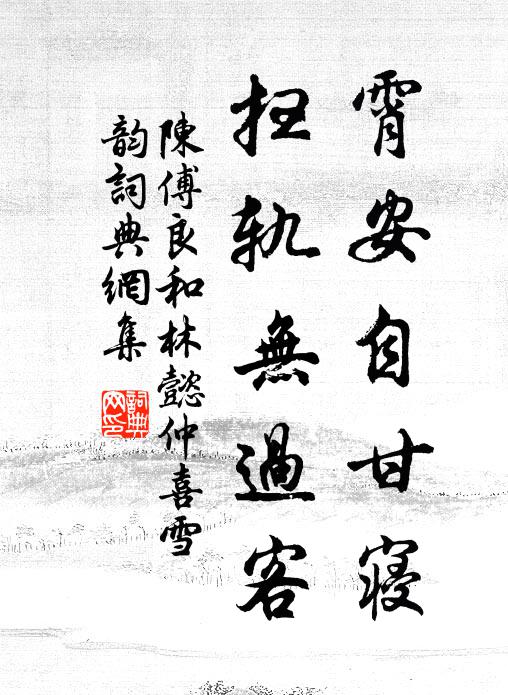 霄安自甘寝
扫轨無過客
陳傅良和林懿仲喜雪
韵詞典網集
詞典網印